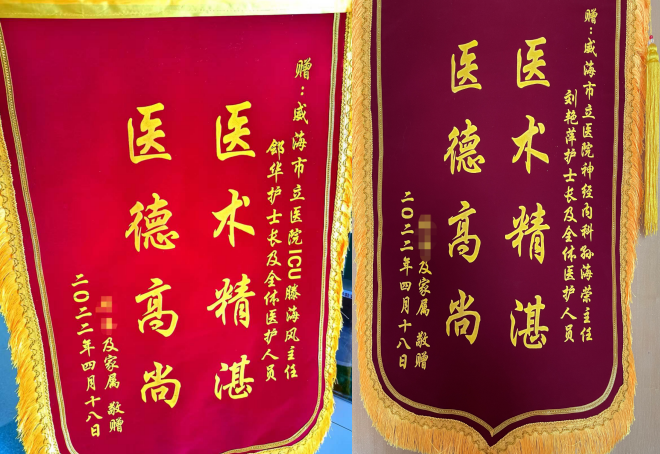 赠：威海市立医院ICU滕海风主任
郐华护士长及全体医护人员
医术精湛
医德高尚
及家属 敬赠
二〇二二年四月十八日
赠：威海市立医院神经内科孙海荣主任
刘艳萍护士长及全体医护人员
医术精湛
医德高尚
及家属 敬赠
二〇二二年四月十八日